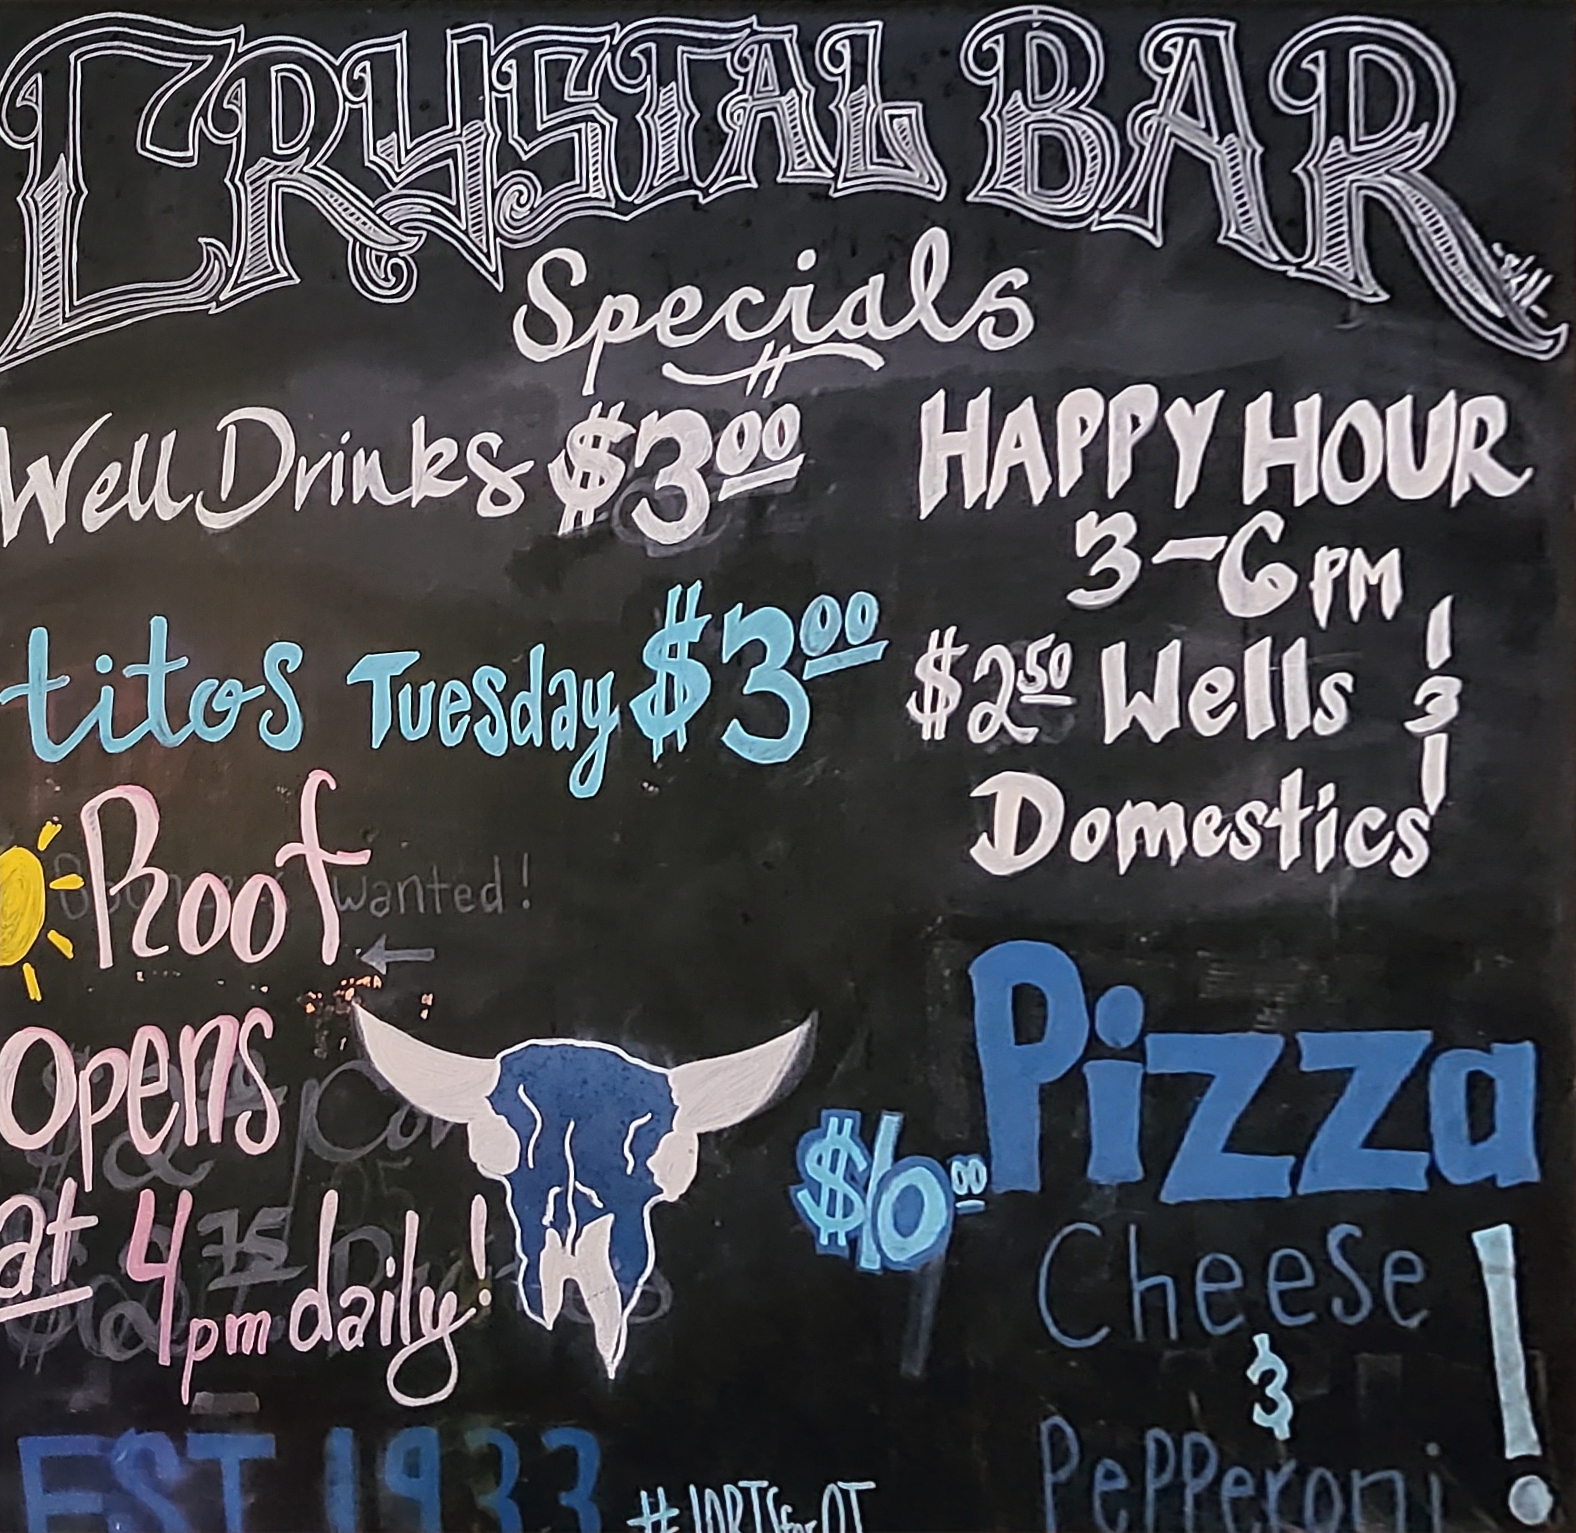 CRYSTAL BAR
Specials
Well Drinks $3.00
titos Tuesday $3.00
Roof
Opens
at 4pm daily!
EST 1933
#JORTSforOT
HAPPY HOUR
3-6 PM
$2.50 Wells &
Domestics
Pizza
$6.00
Cheese
&
Pepperoni!
Wanted!